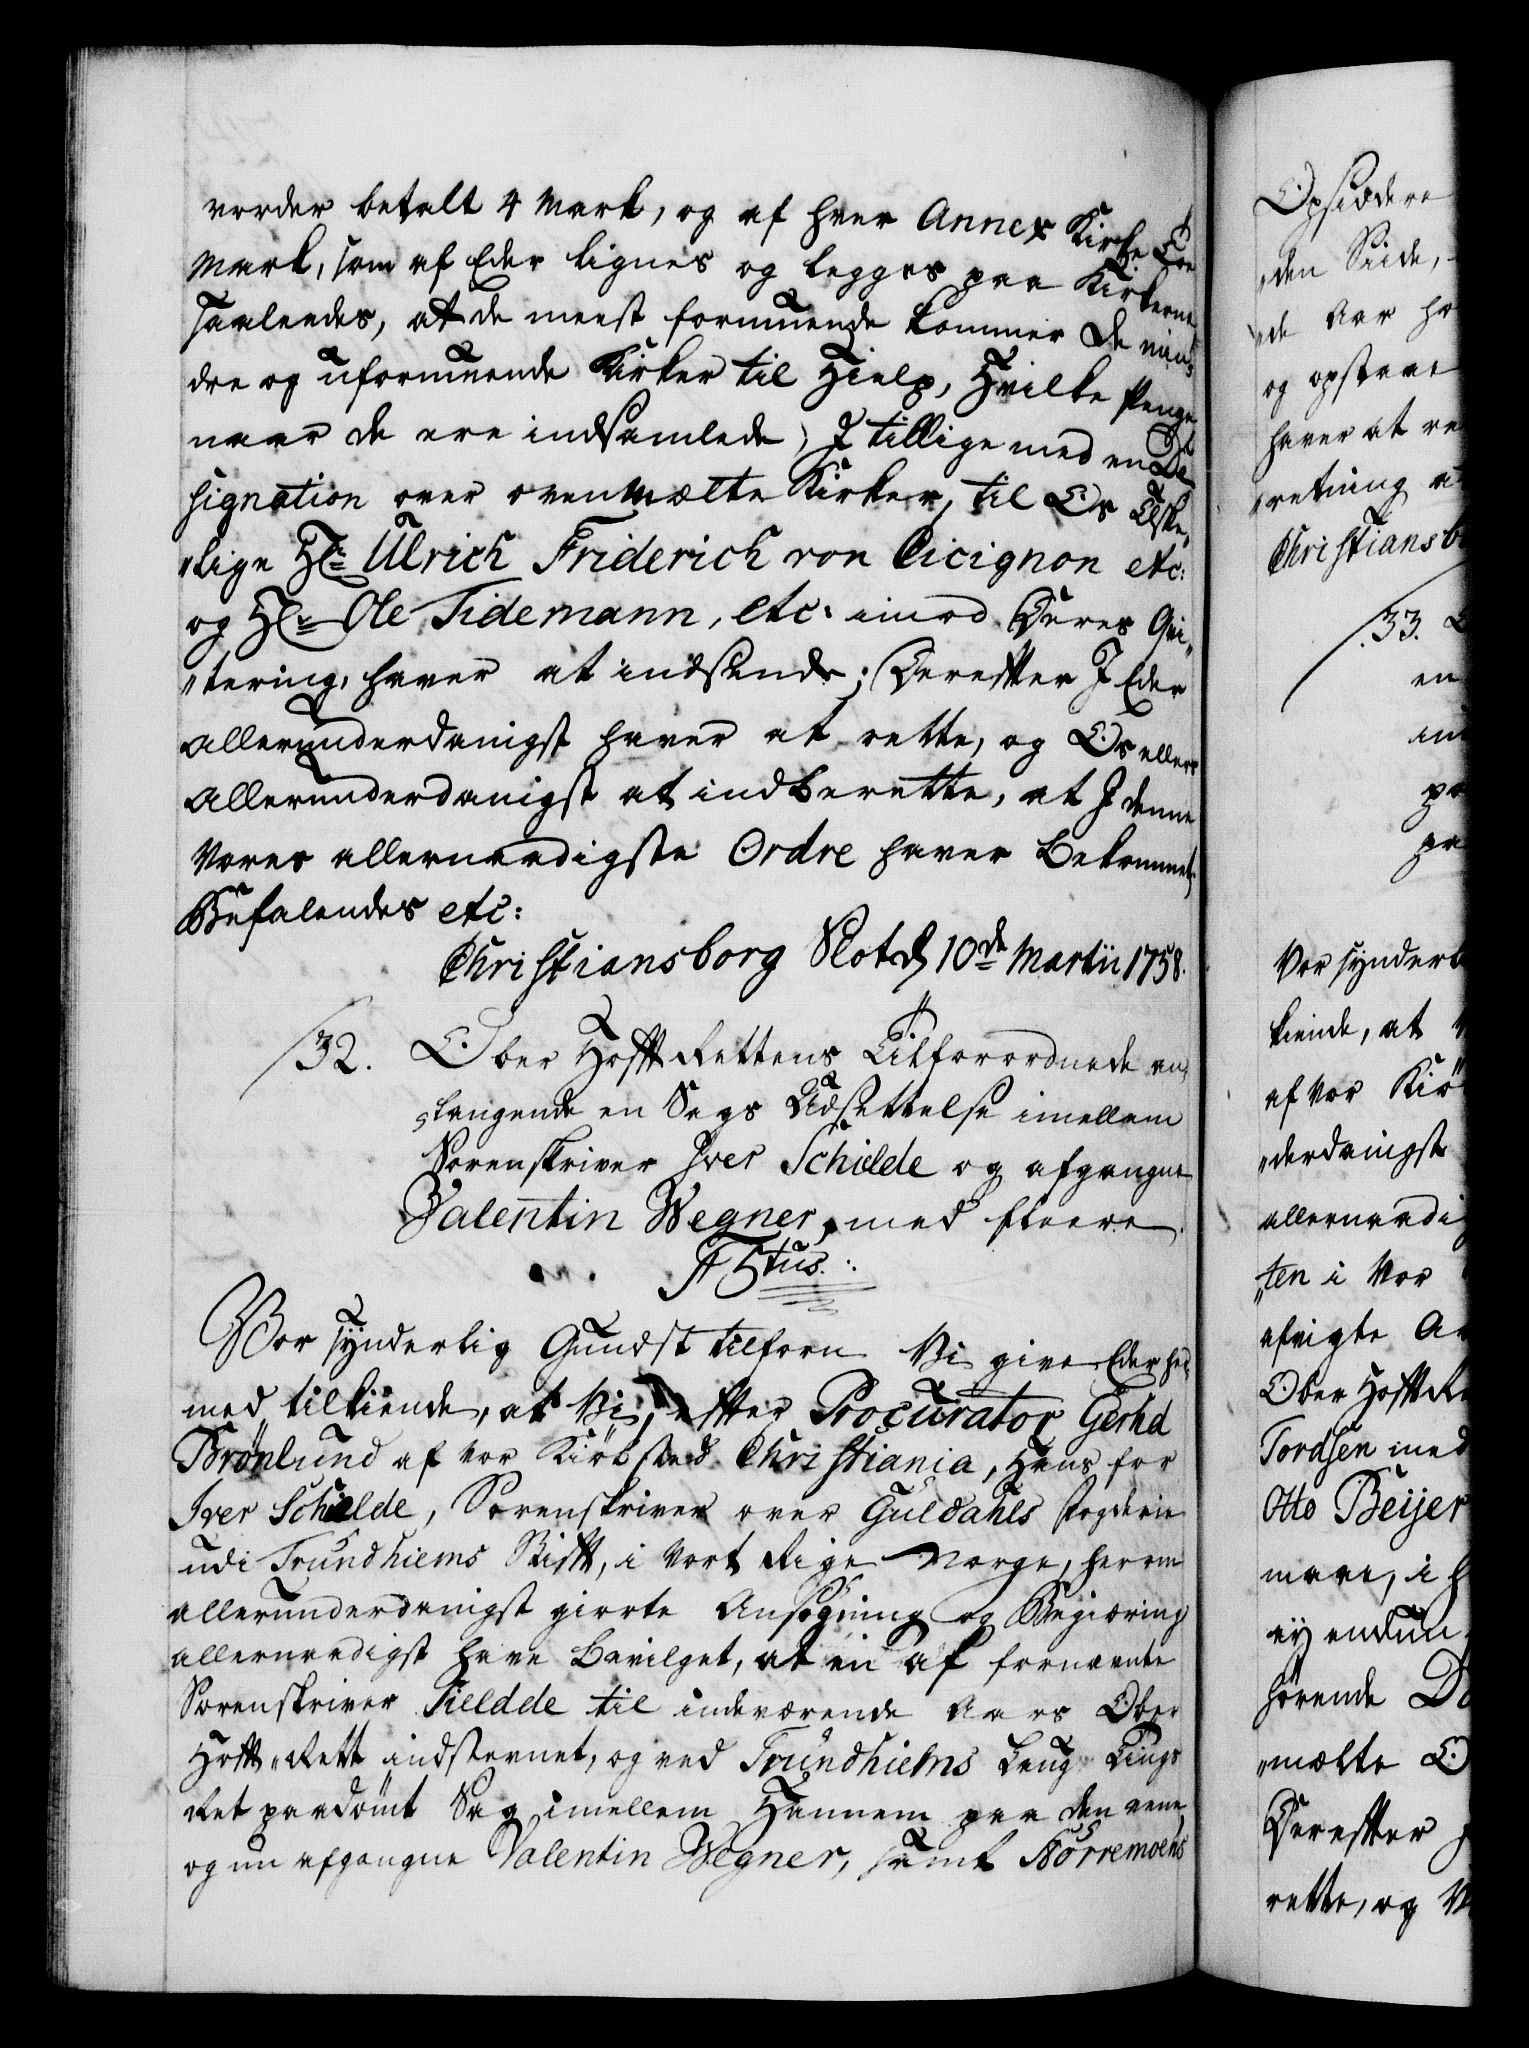 vorder betalt 4 Mark, og af hver Annex Kirke Toe
Mark, som af Eder lignes og legges paa Kirkerne
saaledes, at de meest formuende kommer de min„
dre og uformuende Kirker til Hielp, Hvilke Penge
naar de ere indsamlede, I tillige med en De„
signation over ovenmælte Kirker, til Os Elske„
„lige Hr. Ulrich Friderich von Cicignon etc:
og Hr. Ole Tidemann, etc: imod Deres Qvi„
„tering, haver at indsende; Derefter I Eder
allerunderdanigst haver at rette, og Os ellers
allerunderdanigst at indberette, at I denne
Vores allernaadigste Ordre haver bekommet,
Befalendes etc:
Christiansborg Slot d. 10de Martii 1758.
32. Ober Hoff Rettens Tilforordnede an„
„langende en Sags Udsettelse imellem
Sorenskriver Iver Schielde og afgangne
Valentin Wegner, med fleere.
F 5tus.
Vor synderlig Gundst tilforn Vi give Eder her„
med tilkiende, at Vi, efter Procurator Gerhd
Brönlund af vor Kiöbsted Christiania, Hans for
Iver Schielde, Sorenskriver over Guldahls Fogderie
udi Trundhiems Stift, i Vort Rige Norge, herom
allerunderdanigst giorte Ansøgning og Begiæring
allernaadigst have bevilget, at en af fornævnte
Sorenskriver Tieldde til indeværende Aars Ober
Hoff„Rett indstevnet, og ved Trundhielms Laug Tings
Ret paadömt Sag imellem Hannem paa den eene,
og nu afgangne Valentin Wegner, samt Störremoens
Opsiddere
„den Siide,
„de Aar
og opstaae
haver at
„retning
Christiansb
33.
en
Vor synderl
kiende, at
af vor Kiö
„derdanigst
allernaadig
„ten i Vor
afvigte
Ober Hoff Re
Tordsen med
Otto Beijer
maae, i
ey endnu
hörende
„mælte
Derefter
rette, og